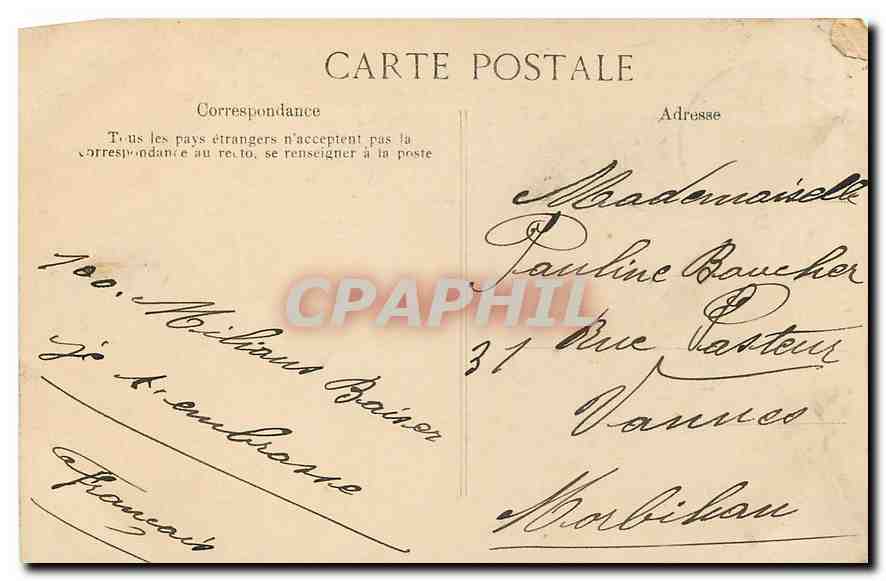 CARTE POSTALE
Correspondance
Tous les pays étrangers n'acceptent pas la
correspondance au recto, se renseigner à la poste
100. Milians Baiser
je t'embrasse
Français
Adresse
Mademoiselle
Pauline Boucher
31 Rue Pasteur
Vannes
Morbihan
CPAPHIL